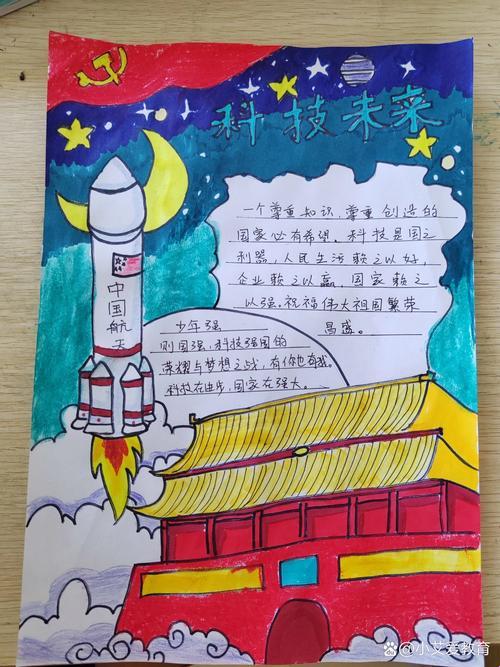 科技未来
一个尊重知识，尊重创造的
国家必有希望。科技是国之
利器，人民生活赖之以好，
企业赖之以赢，国家赖之
以强。祝福伟大祖国繁荣
昌盛。
中国航天
少年强
则国强，科技强国的
荣耀与梦想之战，有你也有我。
科技在进步，国家在强大。
小艾爱教育